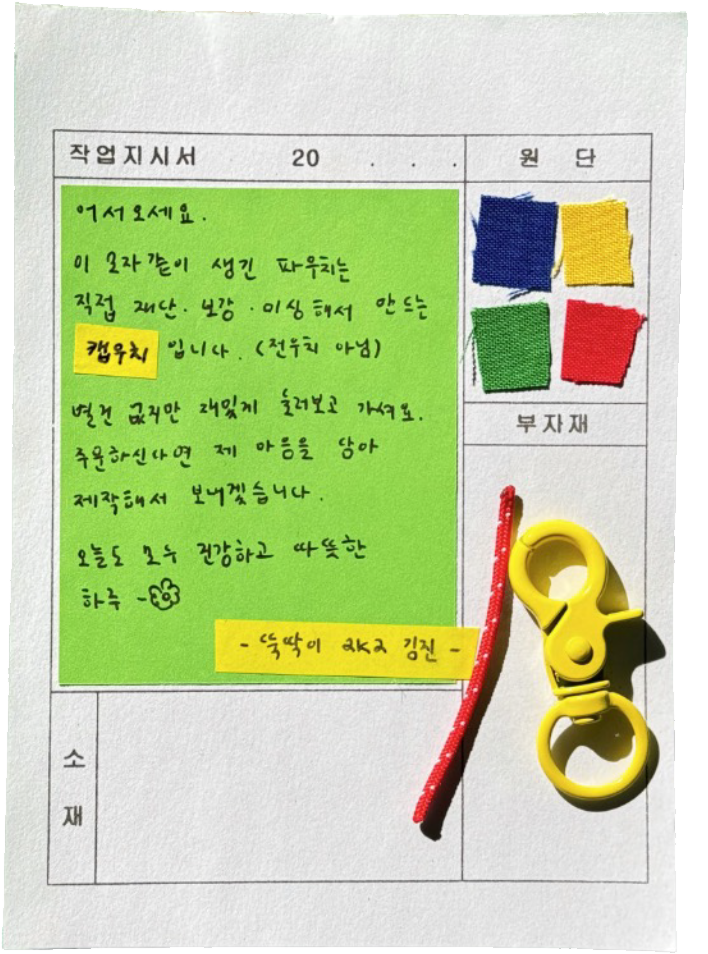 작업지시서 20 . . .
원 단
어서오세요.
이 모자같이 생긴 파우치는
직접 재단·보강·미싱해서 만드는
캡우치 입니다. (전우치 아님)
별건 없지만 재밌게 둘러보고 가셔요.
주문하신다면 제 마음을 담아
제작해서 보내겠습니다.
오늘도 모두 건강하고 따뜻한
하루 -
- 뚝딱이 2K2 김진 -
부자재
소
재